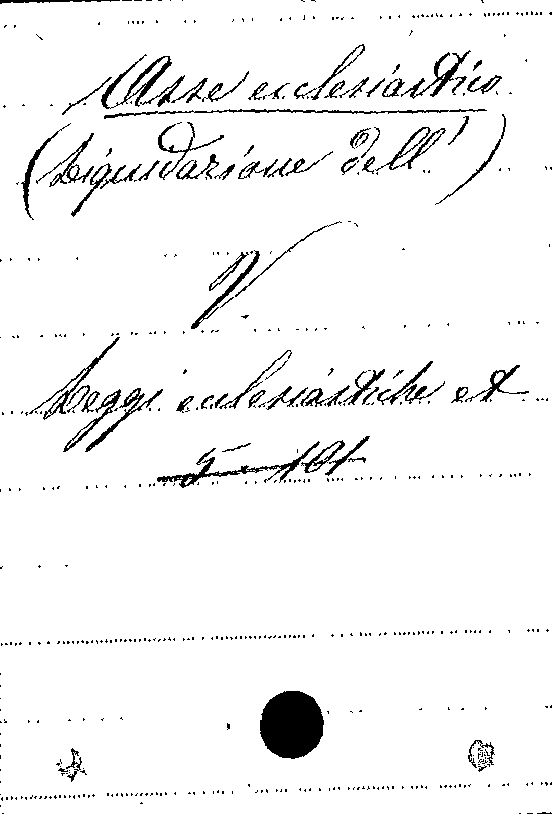 Asse ecclesiastico
(Liquidazione dell')
V.
Leggi ecclesiastiche et
5 - 101